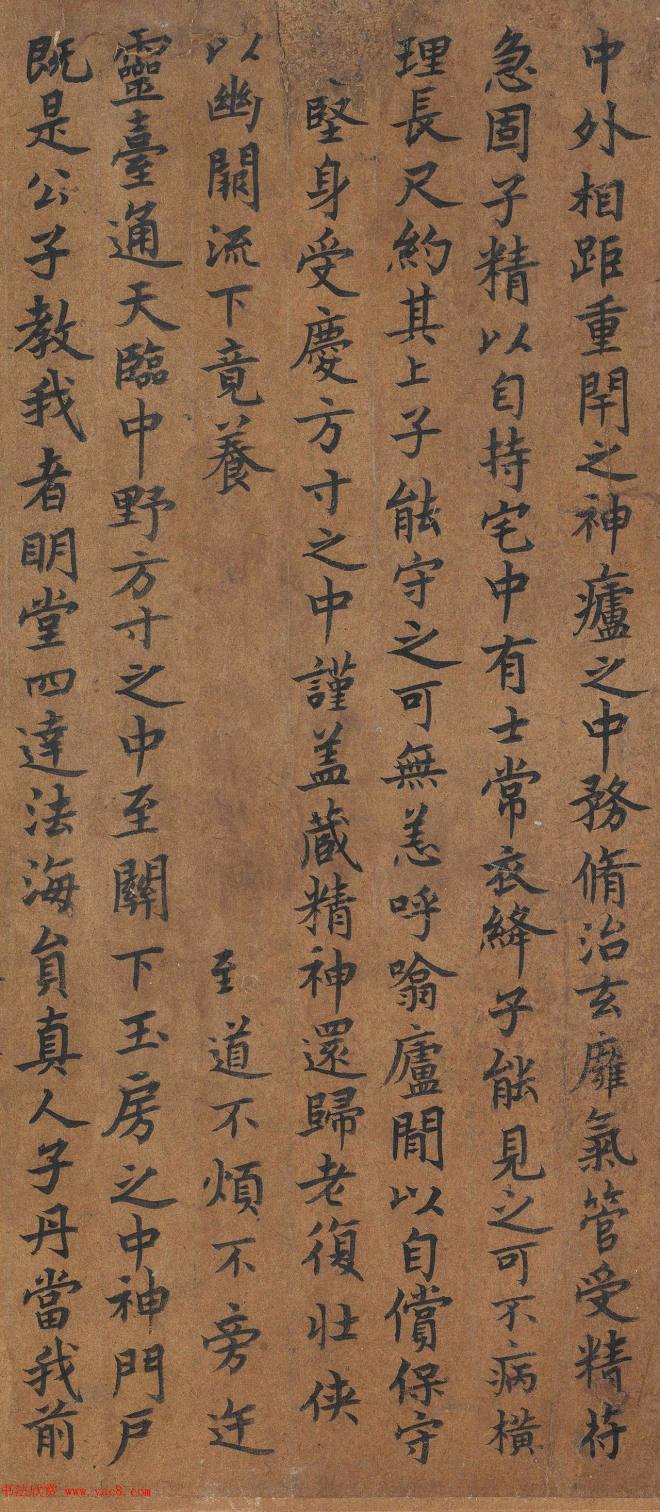 中外相距重閇之神廬之中務脩治玄𢊍氣管受精苻
急固子精以自持宅中有士常衣絳子能見之可不病橫
理長尺約其上子能守之可無恙呼噏廬閒以自償保守
堅身受慶方寸之中謹盖藏精神還歸老復壯俠
以幽闕流下竟養 至道不煩不旁迕
靈臺通天臨中野方寸之中至關下玉房之中神門戶
既是公子教我者明堂四達法海貟真人子丹當我前
书法欣赏 www.yac8.com